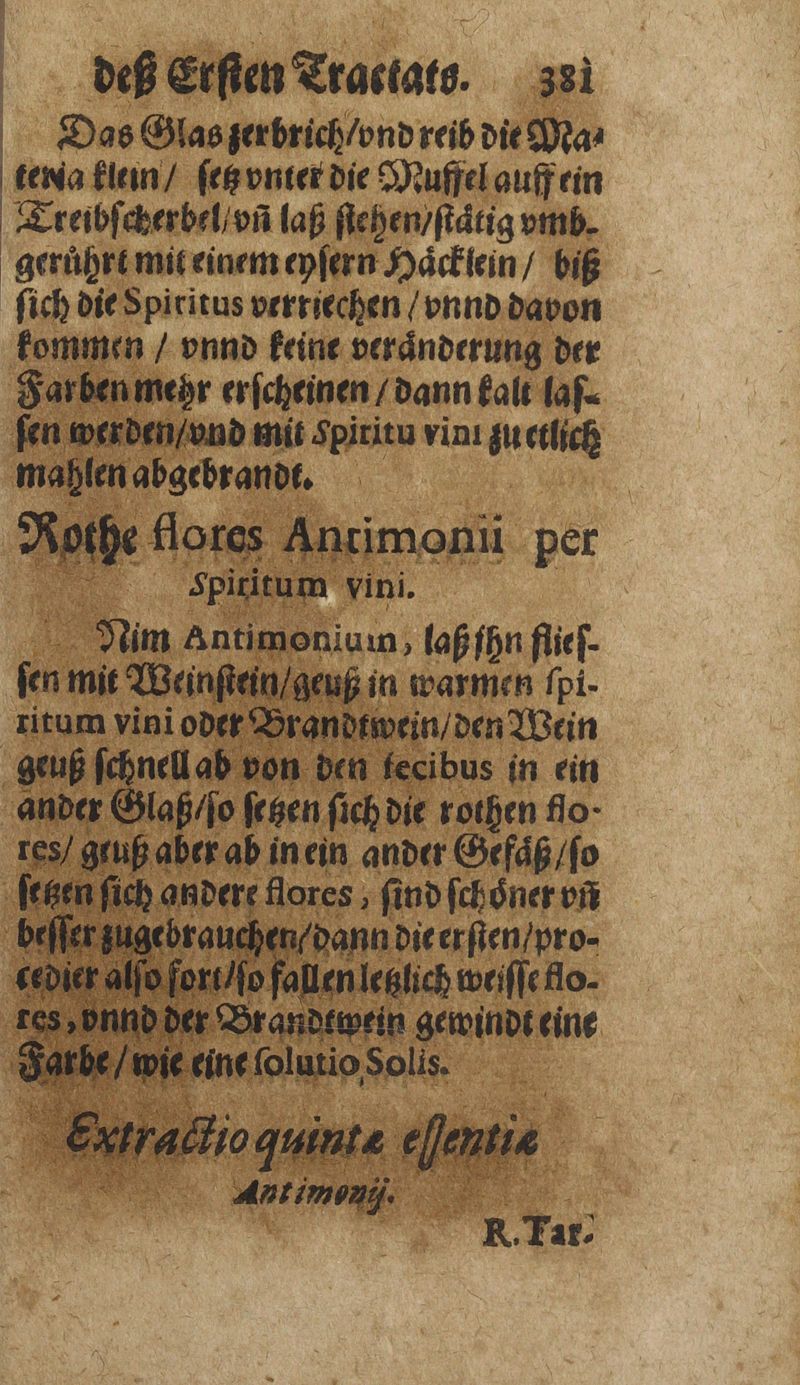 deß Ersten Tractats. 381
Das Glas zerbrich/vnd reib die Ma-
teria klein/ setz vnter die Muffel auff ein
Treibscherbel/vñ laß stehen/stätig vmb-
gerührt mit einem eysern Häcklein/ biß
sich die Spiritus verriechen / vnnd davon
kommen / vnnd keine veränderung der
Farben mehr erscheinen / dann kalt las-
sen werden/vnd mit Spiritu vini zu etlich
mahlen abgebrandt.
Rothe flores Antimonii per
Spiritum vini.
Nim Antimonium, laß jhn flies-
sen mit Weinstein/geuß in warmen spi-
ritum vini oder Brandtwein/den Wein
geuß schnell ab von den fecibus in ein
ander Glaß/so setzen sich die rothen flo-
res/ geuß aber ab in ein ander Gefäß/so
setzen sich andere flores, sind schöner vñ
besser zugebrauchen/dann die ersten/pro-
cedier also fort/so fallen letzlich weisse flo-
res, vnnd der Brandtwein gewindt eine
Farbe / wie eine solutio Solis.
Extractio quintæ essentiæ
Antimonij.
R. Tar-